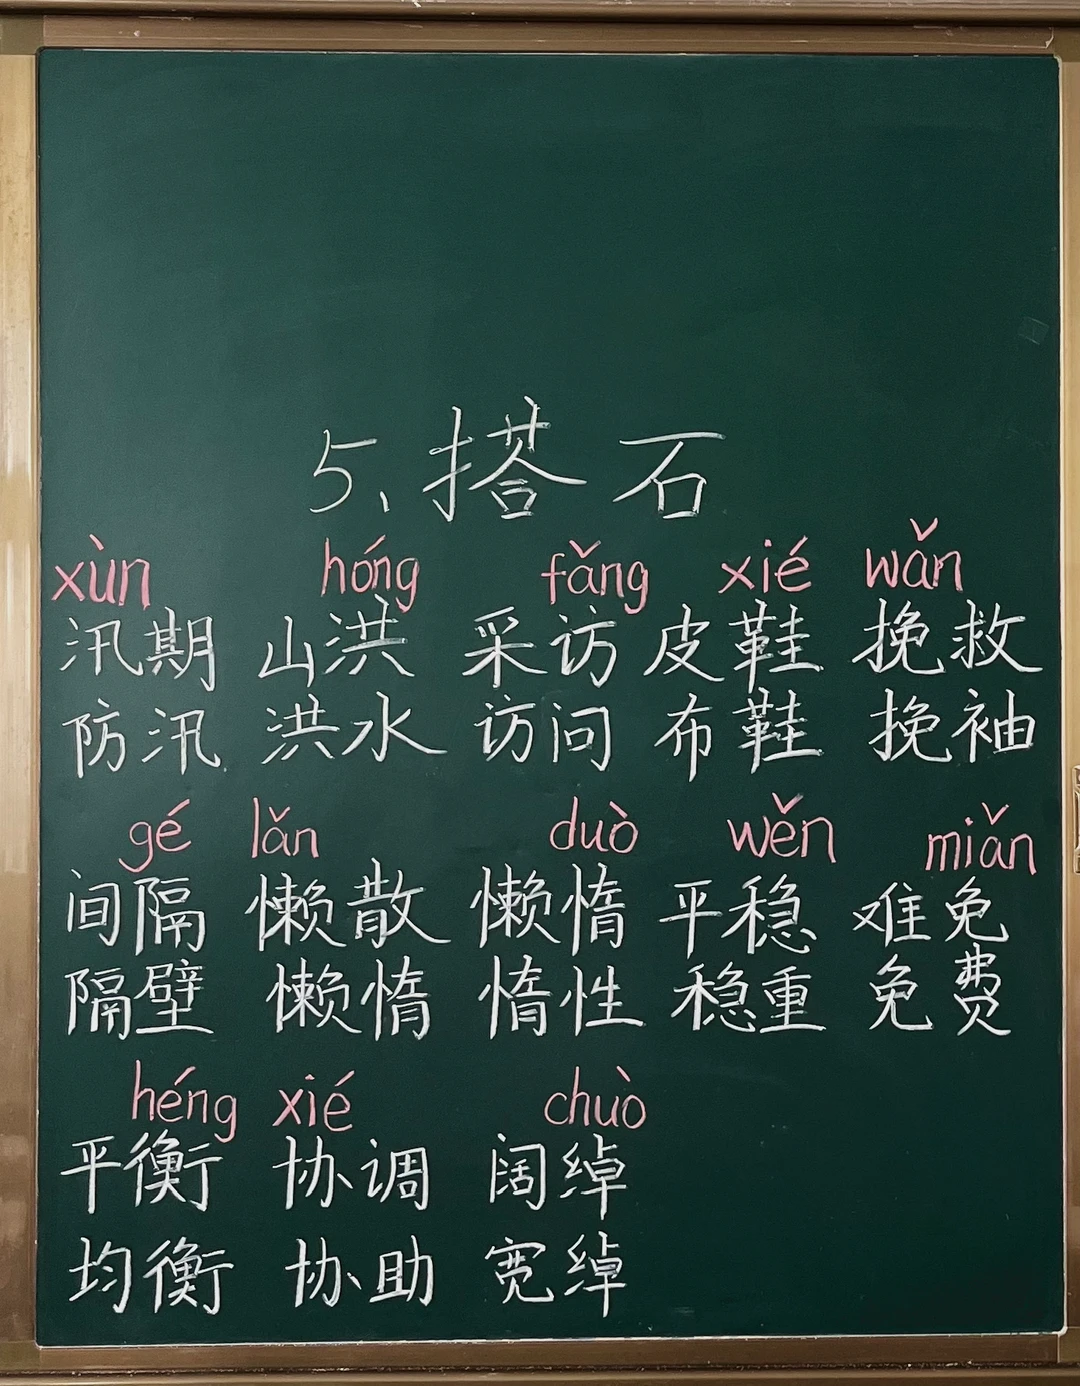 5、搭石
xùn hóng fǎng xié wǎn
汛期 山洪 采访 皮鞋 挽救
防汛 洪水 访问 布鞋 挽袖
gé lǎn duò wěn miǎn
间隔 懒散 懒惰 平稳 难免
隔壁 懒惰 惰性 稳重 免费
héng xié chuò
平衡 协调 阔绰
均衡 协助 宽绰